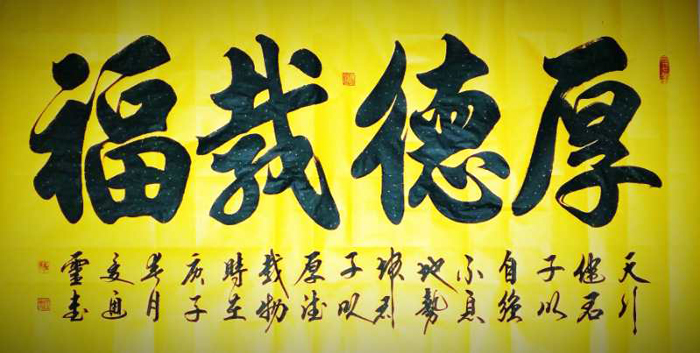 厚德載福
天行
健君
子以
自強
不息
地勢
坤君
子以
厚德
載物
時在
庚子
春月
靈書